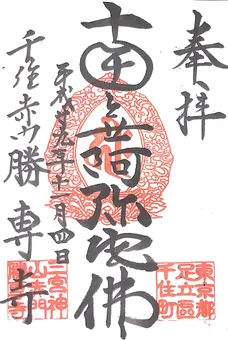 奉拝
南無阿弥陀佛
平成廿九年十一月四日
千住赤門勝専寺
東京都
足立區
千住町
三宮神
山赤門
勝専寺